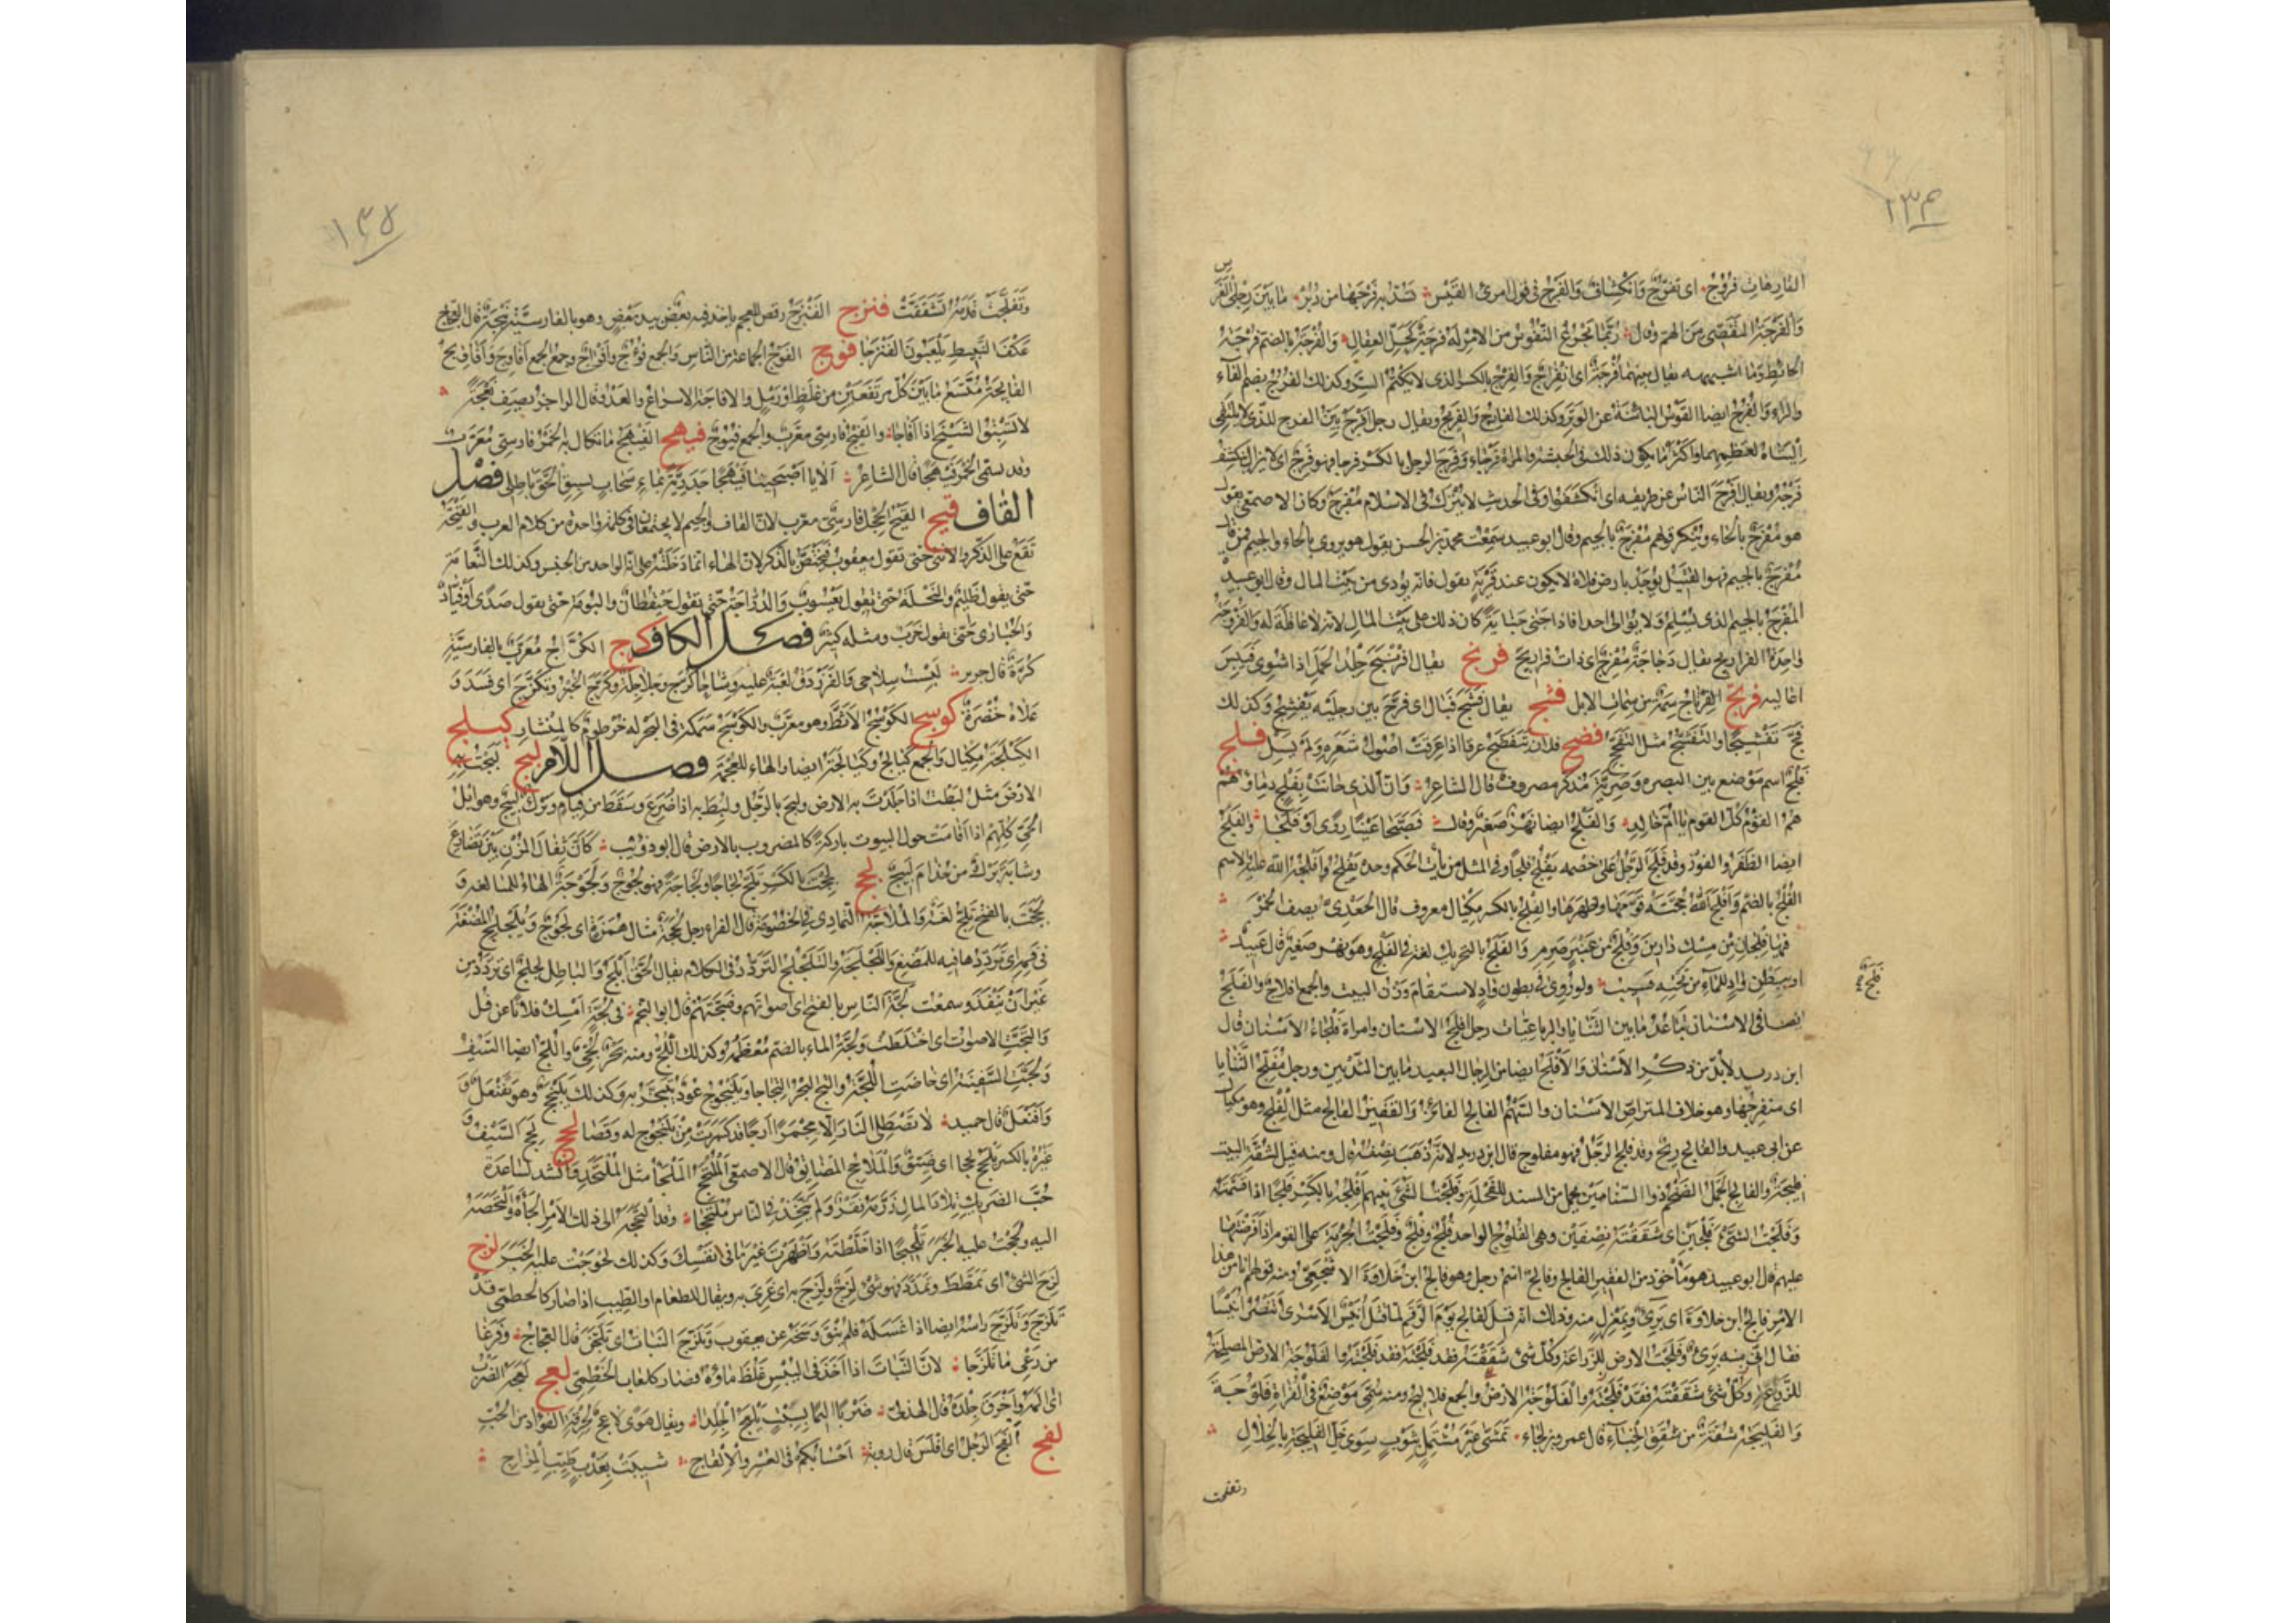 ١٣٤
الفارهات فروج اى تفرج وانكشاف والفرج فى قول امرئ القيس تسد به فرجها من دبر ما بين رجلى الفرس
والفرجة التفصى من الهم وقال ربما تجزع النفوس من الامر له فرجة كحل العقال والفرجة بالضم فرجة
الحائط وما اشبهه يقال بينهما فرجة اى انفراج والفرج بالكسر الذى لا يكتم السر وكذلك الفرج بضم الفاء
والراء والفرج ايضا القوس البائنة عن الوتر وكذلك الفارج والفريج ويقال رجل افرج بين الفرج للذى لا يلتقى
اليتاه لعظمهما واكثر ما يكون ذلك فى الحبشة والمراة فرجاء وفرج الرجل بالكسر فرجا فهو فرج اى لا يزال ينكشف
فرجه ويقال افرج الناس عن طريقه اى انكشفوا وفى الحديث لا يترك فى الاسلام مفرج وكان الاصمعى يقول
هو مفرح بالحاء وينكر قولهم مفرج بالجيم وقال ابو عبيد سمعت محمد بن الحسن يقول هو يروى بالحاء والجيم فمن قال
مفرج بالجيم فهو القتيل يوجد بارض فلاة لا يكون عند قرية يقول فانه يودى من بيت المال وقال ابو عبيدة
المفرج بالجيم الذى يسلم ولا يوالى احدا فاذا جنى جناية كان ذلك على بيت المال لانه لا عاقلة له والفروجة
واحدة الفراريج يقال دجاجة مفرج اى ذات فراريج فرنج يقال افرنبج جلد الحمل اذا شوى فيبس
اعاليه فرتج الفرتاج سمة من سمات الابل فشج يقال فشج فبال اى فرج بين رجليه يفشج وكذلك
فشج تفشيجا والتفشج مثل التفحج فضج فلان يتفضج عرقا اذا عرقت اصول شعره ولم يسل فلج
فلج اسم موضع بين البصرة وضرية مذكر مصروف قال الشاعر وان الذى حانت بفلج دماؤهم
هم القوم كل القوم يا ام خالد والفلج ايضا نهر صغير وقال فصبحا عينا روى وفلجا والفلج
ايضا الظفر والفوز وقد فلج الرجل على خصمه يفلج فلجا وفى المثل من يأت الحكم وحده يفلج وافلجه الله عليه والاسم
الفلج بالضم وافلج الله حجته قومها واظهرها والفلج بالكسر مكيال معروف قال الجعدى يصف الخمر
فيها فلجان من مسك دارين وفلج من عنبر ضرم والفلج بالتحريك لغة فى الفلج وهو نهر صغير قال عبيد
او ببطن واد للماء من تحته قسيب ولو روى فى بطون واد لاستقام وزن البيت والجمع افلاج والفلج
فلج
ايضا فى الاسنان تباعد ما بين الثنايا والرباعيات رجل افلج الاسنان وامراة فلجاء الاسنان قال
ابن دريد لابد من ذكر الاسنان والافلج ايضا من الرجال البعيد ما بين الثديين ورجل مفلج الثنايا
اى منفرجها وهو خلاف المتراص الاسنان والسهم الفالج الفائز والقفيز الفالج مثل الفلج وهو مكيال
عن ابى عبيد والفالج ريح وقد فلج الرجل فهو مفلوج قال ابن دريد لانه ذهب نصفه قال ومنه قيل لشقة البيت
فليجة والفالج الجمل الضخم ذو السنامين يحمل من السند للفحلة وفلجت الشئ بينهم افلجه بالكسر فلجا اذا قسمته
وفلجت الشئ فلجين اى شققته نصفين وهى الفلوج الواحد فلج وفلج وفلجت الجزية على القوم اذا فرضتها
عليهم قال ابو عبيد هو مأخوذ من القفيز الفالج وفالج اسم رجل وهو فالج ابن خلاوة الاشجعى ومنه قولهم انا من هذا
الامر فالج ابن خلاوة اى برئ وبمعزل منه وذلك انه قيل لفالج يوم الرقم لما قتل انيس الاسرى اتنصر انيسا
فقال انى منه برئ وفلجت الارض للزراعة وكل شئ شققته فقد فلجته فقد فلجته والفلوجة الارض المصلحة
للزرع وكل شئ شققته فقد فلجته والفلوجة الارض والجمع فلاليج ومنه سمى موضع فى الفراة فلوجة
والفليجة شقة من شقق الخباء قال عمرو بن لجاء تمشى غير مشتمل بثوب سوى خل الفليجة بالخلال
وتفلجت
١٣٥
وتفلجت قدمه تشققت فنزج الفنزج رقص للعجم ياخذ فيه بعض بيد بعض وهو بالفارسية بنجه قال العجاج
عكف النبيط يلعبون الفنزجا فوج الفوج الجماعة من الناس والجمع فؤوج وافواج وجمع الجمع افاوج وافاويج
الفايجة متسع ما بين كل مرتفعين من غلظ او رمل والافاجة الاسراع والعدو قال الراجز يصف نعجة
لا تسبق الشيخ اذا افاجا والفيج فارسى معرب والجمع فيوج فيهج الفيهج ما تكال به الخمر فارسى معرب
وقد تسمى الخمر فيهجا قال الشاعر الا يا اصبحينا فيهجا جدرية بماء سحاب يسبق الحق باطلى فصل
القاف قبج القبج الحجل فارسى معرب لان القاف والجيم لا يجتمعان فى كلمة واحدة من كلام العرب والقبجة
تقع على الذكر والانثى حتى تقول يعقوب فيختص بالذكر لان الهاء انما دخلته على انه الواحد من الجنس وكذلك النعامة
حتى يقول ظليم والنحلة حتى يقول يعسوب والدراجة حتى يقول حيقطان والبومة حتى يقول صدى او فياد
والحبارى حتى يقول خرب ومثله كثير فصل الكاف كرج الكرج معرب بالفارسية
كره قال جرير لبست سلاحى والفرزدق لعبة عليه وشاحا كرج وجلاجله وكرج الخبز وتكرج اى فسد و
علاه خضرة كوسج الكوسج الاثط وهو معرب والكوسج سمكة فى البحر له خرطوم كالمنشار كيلج
الكيلجة مكيال والجمع كيالج وكيالجة ايضا والهاء للعجمة فصل اللام لبج لبجت به
الارض مثل لبطت اذا جلدت به الارض ولبج بالرجل ولبط به اذا صرع وسقط من قيام وبرك لبيج وهو ابل
الحى كلهم اذا اقامت حول البيوت باركة كالمضروب بالارض قال ابو ذؤيب كان ثقال المزن بين تضارع
وشابة برك من جذام لبيج لجج لججت بالكسر تلج لجاجا ولجاجة فهو لجوج ولجوجة الهاء للمبالغة و
لججت بالفتح تلج لغة والملاجة التمادى فى الخصومة قال الفراء رجل لججة مثال همزة اى لجوج ويلجلج المضغة
فى فمه اى يرددها فيه للمضغ واللجلجة والتلجلج التردد فى الكلام يقال الحق ابلج والباطل لجلج اى يردد من
غير ان ينفذ وسمعت لجة الناس بالفتح اى اصواتهم وضجتهم قال ابو النجم فى لجة امسك فلانا عن فل
والتجت الاصوات اى اختلطت ولجة الماء بالضم معظمه وكذلك اللج ومنه بحر لجى واللج ايضا السيف
ولججت السفينة اى خاضت اللجة والتج البحر التجاجا ويلنجوج عود يتبخر به وكذلك يلنجج وهو يفنعل و
وافنعل قال حميد لا تصطلى النار الا مجمرا ارجا قد كسرت من يلنجوج له وقصا لحج لحج السيف و
غيره بالكسر يلحج لحجا اى ضيق والملاحج المضايق وقال الاصمعى الملتحج الملجأ مثل الملتحد وانشد لساعدة
حب الضريك تلاد المال زرمه فقر ولم يتخذ فى الناس ملتحجا وقد التحجه الى ذلك الامر الجأه والتحصه
اليه ولحجت عليه الخبر تلحيجا اذا خلطته واظهرت غير ما فى نفسك وكذلك لحوجت عليه الخبر لزج
لزج الشئ اى تمطط وتمدد فهو شئ لزج ولزج به اى غرى به ويقال للطعام او الطيب اذا صار كالخطمى قد
تلزج وتلزج راسه ايضا اذا غسله فلم ينق وسخه عن يعقوب وتلزج النبات اى تلجن قال العجاج وفرغا
من رعى ما تلزجا لان النبات اذا اخذ فى اليبس غلظ ماؤه فصار كلعاب الخطمى لعج لعجه الضرب
اى المه واحرق جلده قال الهذلى ضربا اليما بسبت يلعج الجلدا ويقال هوى لاعج لحرقة الفؤاد من الحب
لفج الفج الرجل اى افلس قال رؤبة احسابكم فى العسر والالفاج شيبت بعذب طيب المزاج